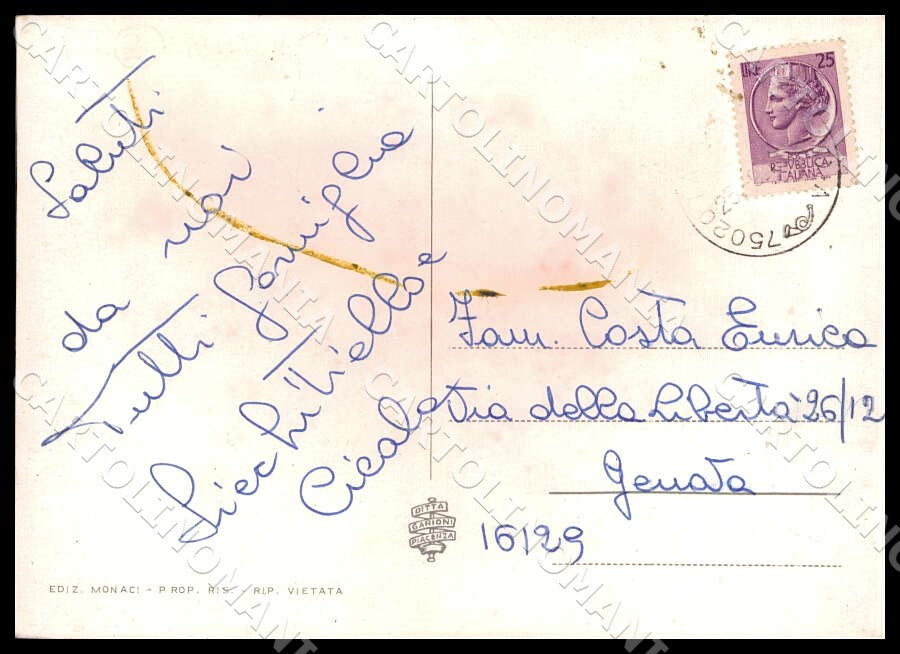 Saluti
da noi
Tutti famiglia
Cicala
LIRE 25
REPUBBLICA
ITALIANA
75020
Fam. Costa Enrica
Via della Libertà 26/12
Genova
16129
DITTA
GARIONI
PIACENZA
EDIZ. MONACI - PROP. RIS. - RIP. VIETATA
CARTOLINOMANIA